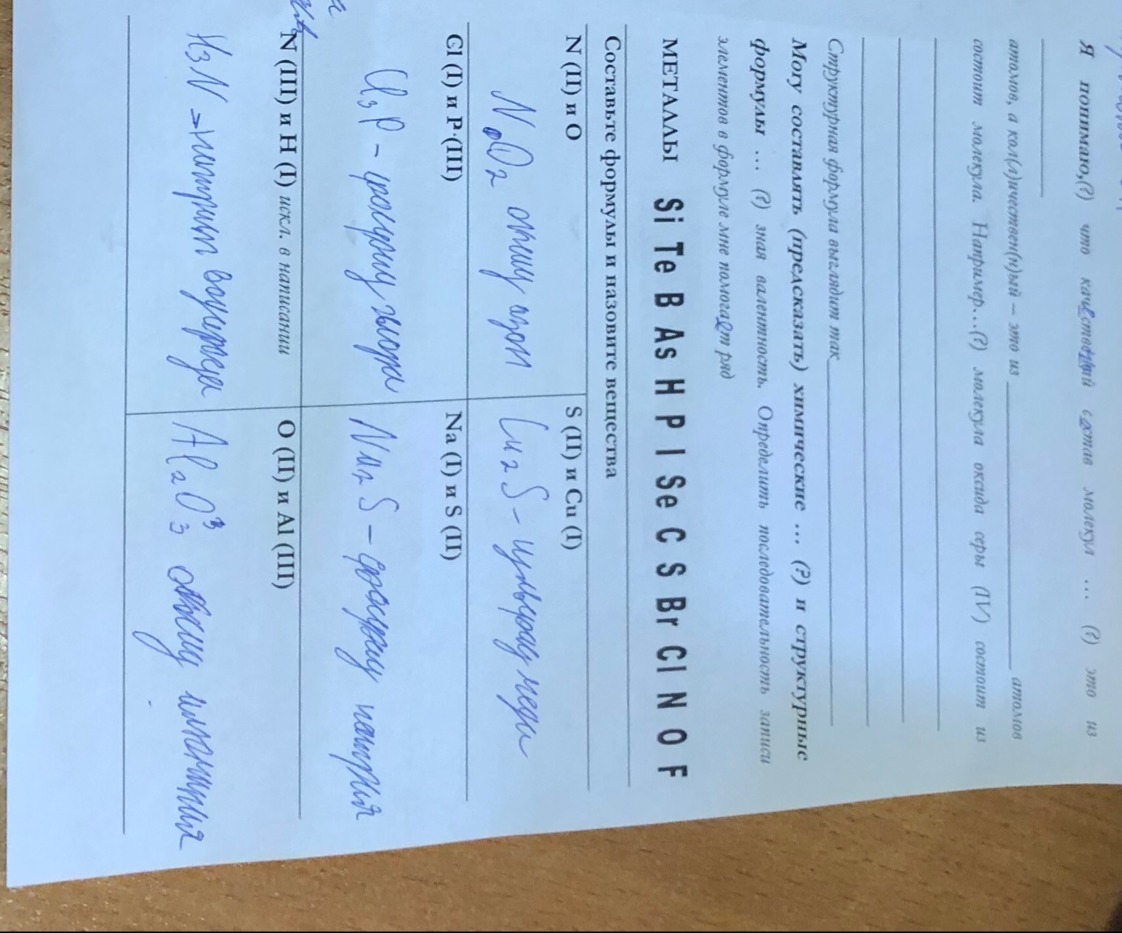 Я понимаю,(?) что качественный состав молекул … (?) это из
атомов, а кол(л)ичествен(н)ый – это из атомов
состоит молекула. Например…(?) молекула оксида серы (IV) состоит из
Структурная формула выглядит так
Могу составлять (предсказать) химические … (?) и структурные
формулы … (?) зная валентность. Определить последовательность записи
элементов в формуле мне помогает ряд
МЕТАЛЛЫ Si Te B As H P I Se C S Br Cl N O F
Составьте формулы и назовите вещества
N (II) и O S (II) и Cu (I)
O₂ Cu₂S - меди
Cl (I) и P (III) Na (I) и S (II)
Cl₃P - Na₂S - натрия
N (III) и H (I) искл. в написании O (II) и Al (III)
H₃N - нитрит водорода Al₂O₃ оксид алюминия